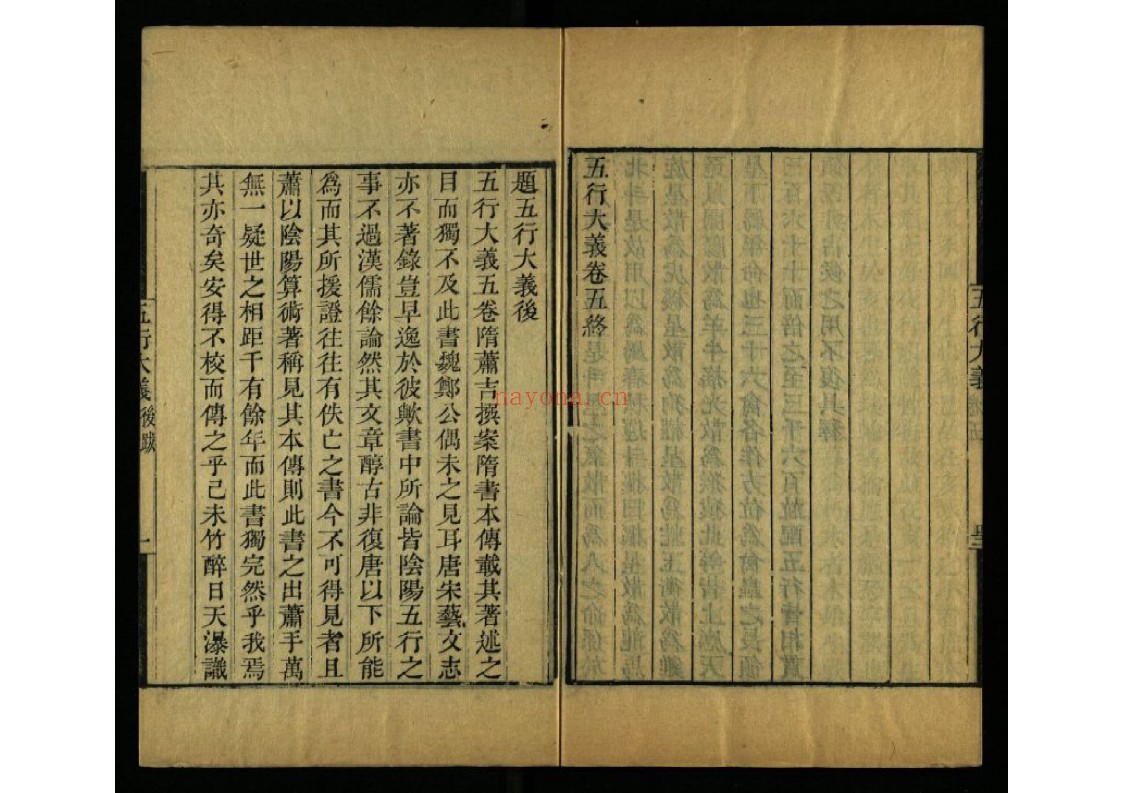 五行大義卷五終
題五行大義後
五行大義五卷隋蕭吉撰案隋書本傳載其著述之
目而獨不及此書魏鄭公偶未之見耳唐宋藝文志
亦不著錄豈早逸於彼歟書中所論皆陰陽五行之
事不過漢儒餘論然其文章醇古非復唐以下所能
為而其所援證往往有佚亡之書今不可得見者且
蕭以陰陽算術著稱見其本傳則此書之出蕭手萬
無一疑世之相距千有餘年而此書獨完然乎我焉
其亦奇矣安得不校而傳之乎己未竹醉日天瀑識
五行大義 後跋
一
nayona.cn